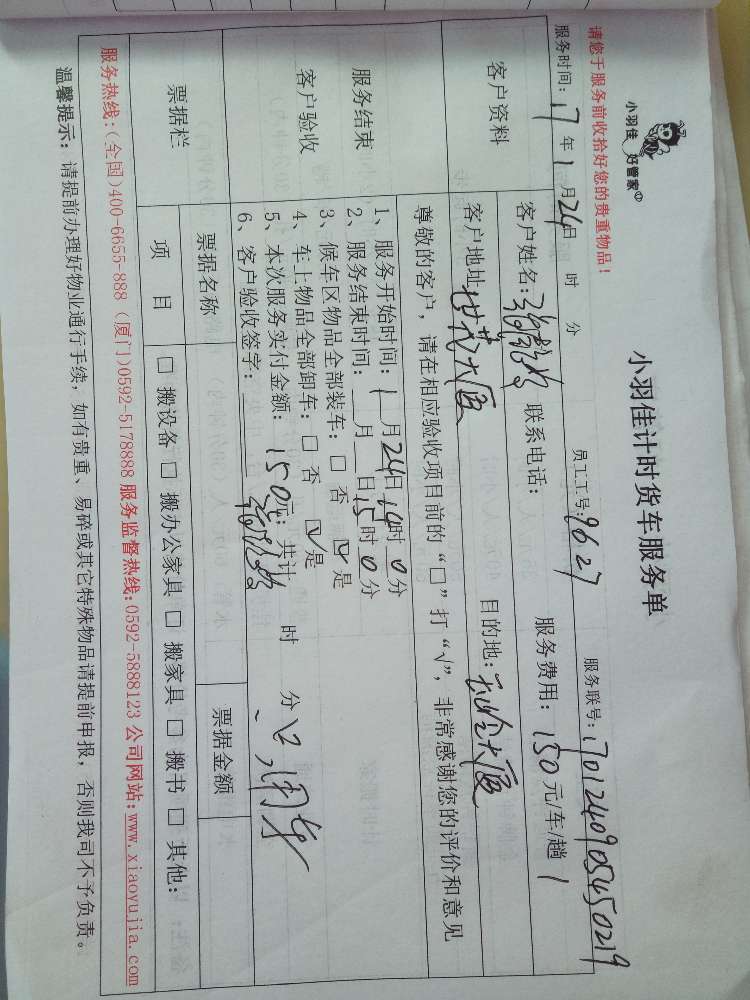 小羽佳 好管家
小羽佳计时货车服务单
请您于服务前收拾好您的贵重物品！
服务联号：170124090545 0219
服务时间：17 年 1 月 24 日 时 分 员工工号：9627
客户资料
客户姓名： 联系电话： 服务费用：150 元/车/趟 1
客户地址：世茂大厦 目的地：大厦
尊敬的客户，请在相应验收项目前的“□”打“√”，非常感谢您的评价和意见
服务结束
客户验收
1、服务开始时间：1 月 24 日 14 时 0 分
2、服务结束时间： 月 日 15 时 0 分
3、候车区物品全部装车：□ 否 ☑ 是
4、车上物品全部卸车：□ 否 ☑ 是
5、本次服务实付金额：150 元；共计 时 分
6、客户验收签字：
票据栏
票据名称 票据金额
项 目 □ 搬设备 □ 搬办公家具 □ 搬家具 □ 搬书 □ 其他：
服务热线：(全国)400-6655-888 (厦门)0592-5178888 服务监督热线：0592-5888123 公司网站：www.xiaoyujia.com
温馨提示：请提前办理好物业通行手续，如有贵重、易碎或其它特殊物品请提前申报，否则我司不予负责。